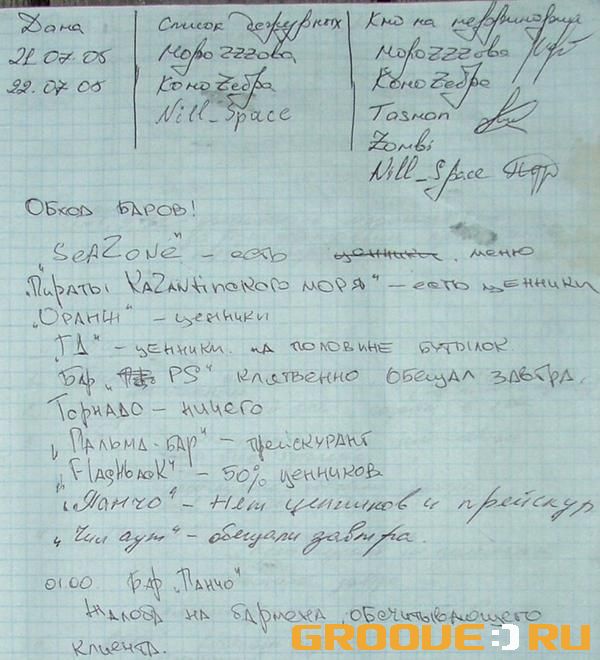 Дата Список дежурных Кто на территории
21.07.05 МороZZZова МороZZZова
22.07.05 КоноZебра КоноZебра
Nill_Space Tasman
Zombi
Nill_Space
Обход баров!
„SeAZone" – есть ценники, меню
„Пираты KaZantипского моря" – есть ценники
„Оранж" – ценники
„ТД" – ценники на половине бутылок
Бар „PS" клятвенно обещал завтра.
Торнадо – ничего
„Пальма-бар" – прейскурант
„Flashback" – 50% ценников
„Панчо" – нет ценников и прейскур
„Чил аут" – обещали завтра.
01.00. Бар „Панчо"
Жалоба на бармена, обсчитывающего
клиента.
GROOVE.RU